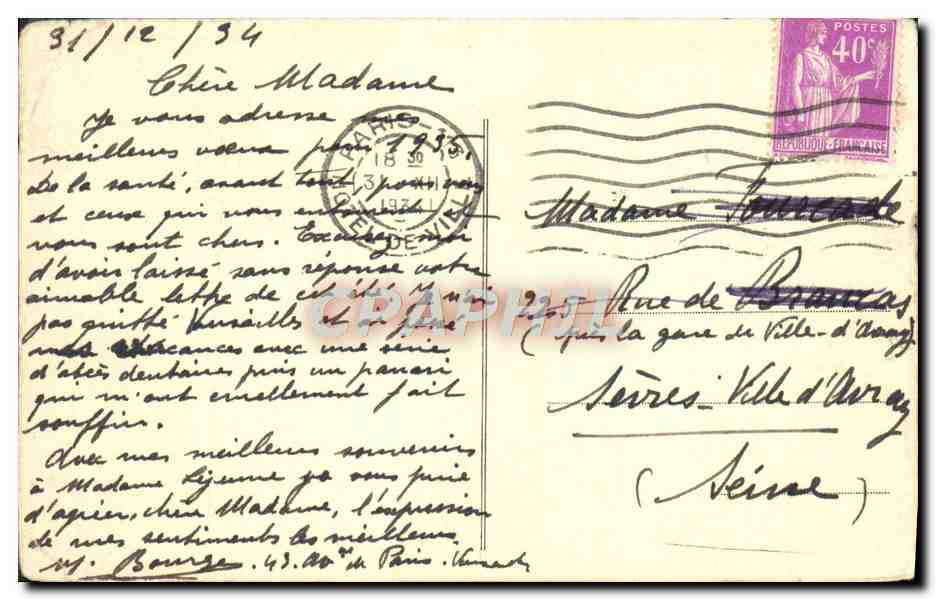 31/12/34
Chère Madame
Je vous adresse mes
meilleurs vœux pour 1935.
De la santé, avant tout, pour vous
et ceux qui vous entourent et
vous sont chers. Excusez moi
d'avoir laissé sans réponse votre
aimable lettre de cet été. Je n'ai
pas quitté Versailles et ai passé
mes vacances avec une série
d'abcès dentaires puis un panari
qui m'ont cruellement fait
souffrir.
Avec mes meilleurs souvenirs
à Madame Lejeune je vous prie
d'agréer, chère Madame, l'expression
de mes sentiments les meilleurs.
M. Bourge. 43 Av. de Paris. Versailles
PARIS
18 30
31 XII
1934
POSTES
40c
REPUBLIQUE-FRANCAISE
Madame Fourcade
225 Rue de Brancas
(près la gare de Ville-d'Avray)
Sèvres-Ville d'Avray
(Seine)
CPAPHIL